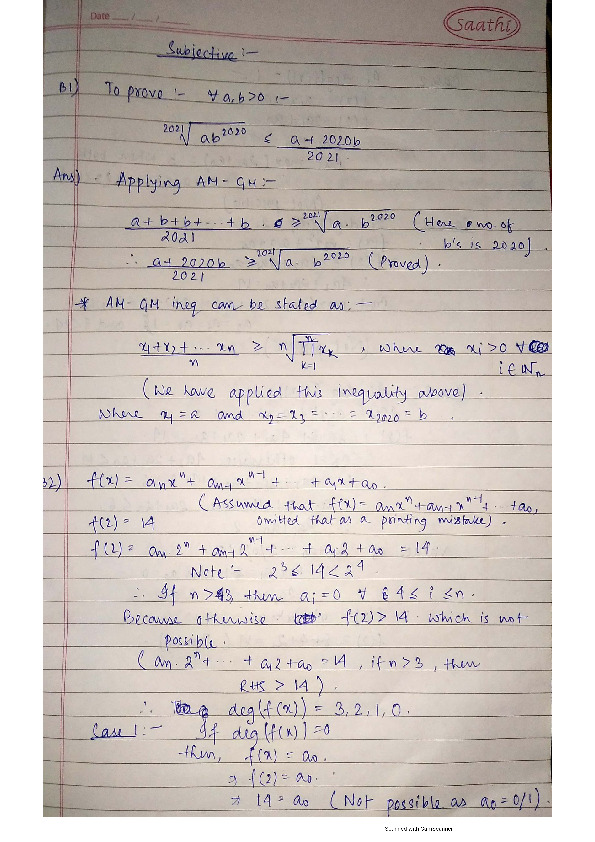 Date ___/___/___
Saathi
Subjective :-
B1) To prove :- ∀ a,b>0 :-
²⁰²¹√(ab²⁰²⁰) ≤ (a+2020b)/2021
Ans) Applying AM-GM:-
(a+b+b+⋯+b)/2021 ≥ ²⁰²¹√(a·b²⁰²⁰) (Here no. of
b's is 2020)
∴ (a+2020b)/2021 ≥ ²⁰²¹√(a·b²⁰²⁰) (Proved).
* AM-GM ineq can be stated as:-
(x₁+x₂+⋯xₙ)/n ≥ n√(∏ₖ₌₁ⁿ xₖ), where xᵢ>0 ∀
i∈ℕₙ
(We have applied this inequality above).
Where x₁=a and x₂=x₃=⋯=x₂₀₂₀=b.
B2) f(x) = aₙxⁿ+aₙ₋₁xⁿ⁻¹+⋯+a₁x+a₀.
(Assumed that f(x)=aₙxⁿ+aₙ₋₁xⁿ⁻¹+⋯+a₀,
f(2)=14 omitted that as a printing mistake).
f(2)= aₙ2ⁿ+aₙ₋₁2ⁿ⁻¹+⋯+a₁2+a₀ =14.
Note :- 2³≤14<2⁴
∴ If n>3 then aᵢ=0 ∀ 4≤i≤n.
Because otherwise f(2)>14 which is not
possible.
(aₙ·2ⁿ+⋯+a₁2+a₀=14, if n>3, then
RHS > 14).
∴ deg(f(x)) = 3,2,1,0.
Case 1:- If deg(f(x))=0
then, f(x)=a₀.
⇒ f(2)=a₀.
⇒ 14=a₀ (Not possible as a₀=0/1).
Scanned with CamScanner